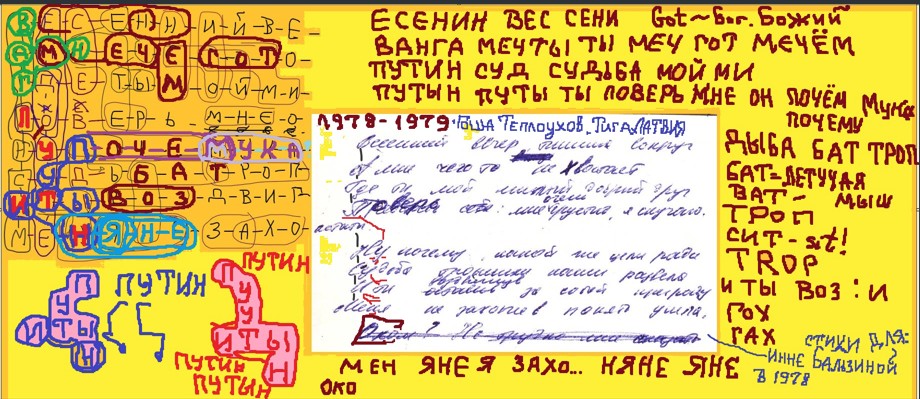 В-Е-С-Е-Н-Н-И-Й-В-Е-
А-М-Н-Е-Ч-Е-Г-О-Т-О-
Г-Д-Е-Т-Ы-Д-О-Й-М-И-
П-О-В-Е-Р-Ь-М-Н-Е-О
Н-У-П-О-Ч-Е-М-У-К-А
С-У-Д-Ь-Б-А-Т-Р-О-П
И-Т-Ы-В-О-З-Д-В-И-Г
М-Е-Н-Я-Н-Е-З-А-Х-О-
ЕСЕНИН ВЕС СЕНИ Got~Бог. Божий
ВАНГА МЕЧТЫ ТЫ МЕЧ ГОТ МЕЧЁМ
ПУТИН СУД СУДЬБА МОЙ МИ
ПУТЫН ПУТЫ ТЫ ПОВЕРЬ МНЕ ОН ПОЧЁМ МУКА
ПОЧЕМУ
1978-1979 Гоша Теплоухов, Рига ЛАТВИЯ
Весенний вечер тишина вокруг
А мне чего то не хватает
Где ты мой милый добрый друг
Поверь мне грустно, я скучаю.
Ну почему, какой же цели ради
Судьба нашими
И ты за собой преграду
Меня не захотев понять ушла.
ДЫБА БАТ ТРОП
БАТ=ЛЕТУЧАЯ
МЫШ
ВАТ-
ТРОП
СИТ-sit!
TROP
И ТЫ ВОЗ: И
ГОХ
ГАХ
СТИХИ ДЛЯ:
ИННЕ БАЛЬЗИНОЙ
В 1978
ПУТИН
ПУТЫН
ПУТИН
ПУТИН
ПУТИН
ПУТЫН
МЕН ЯНЕ Я ЗАХО... НЯНЕ ЯНЕ
ОКО